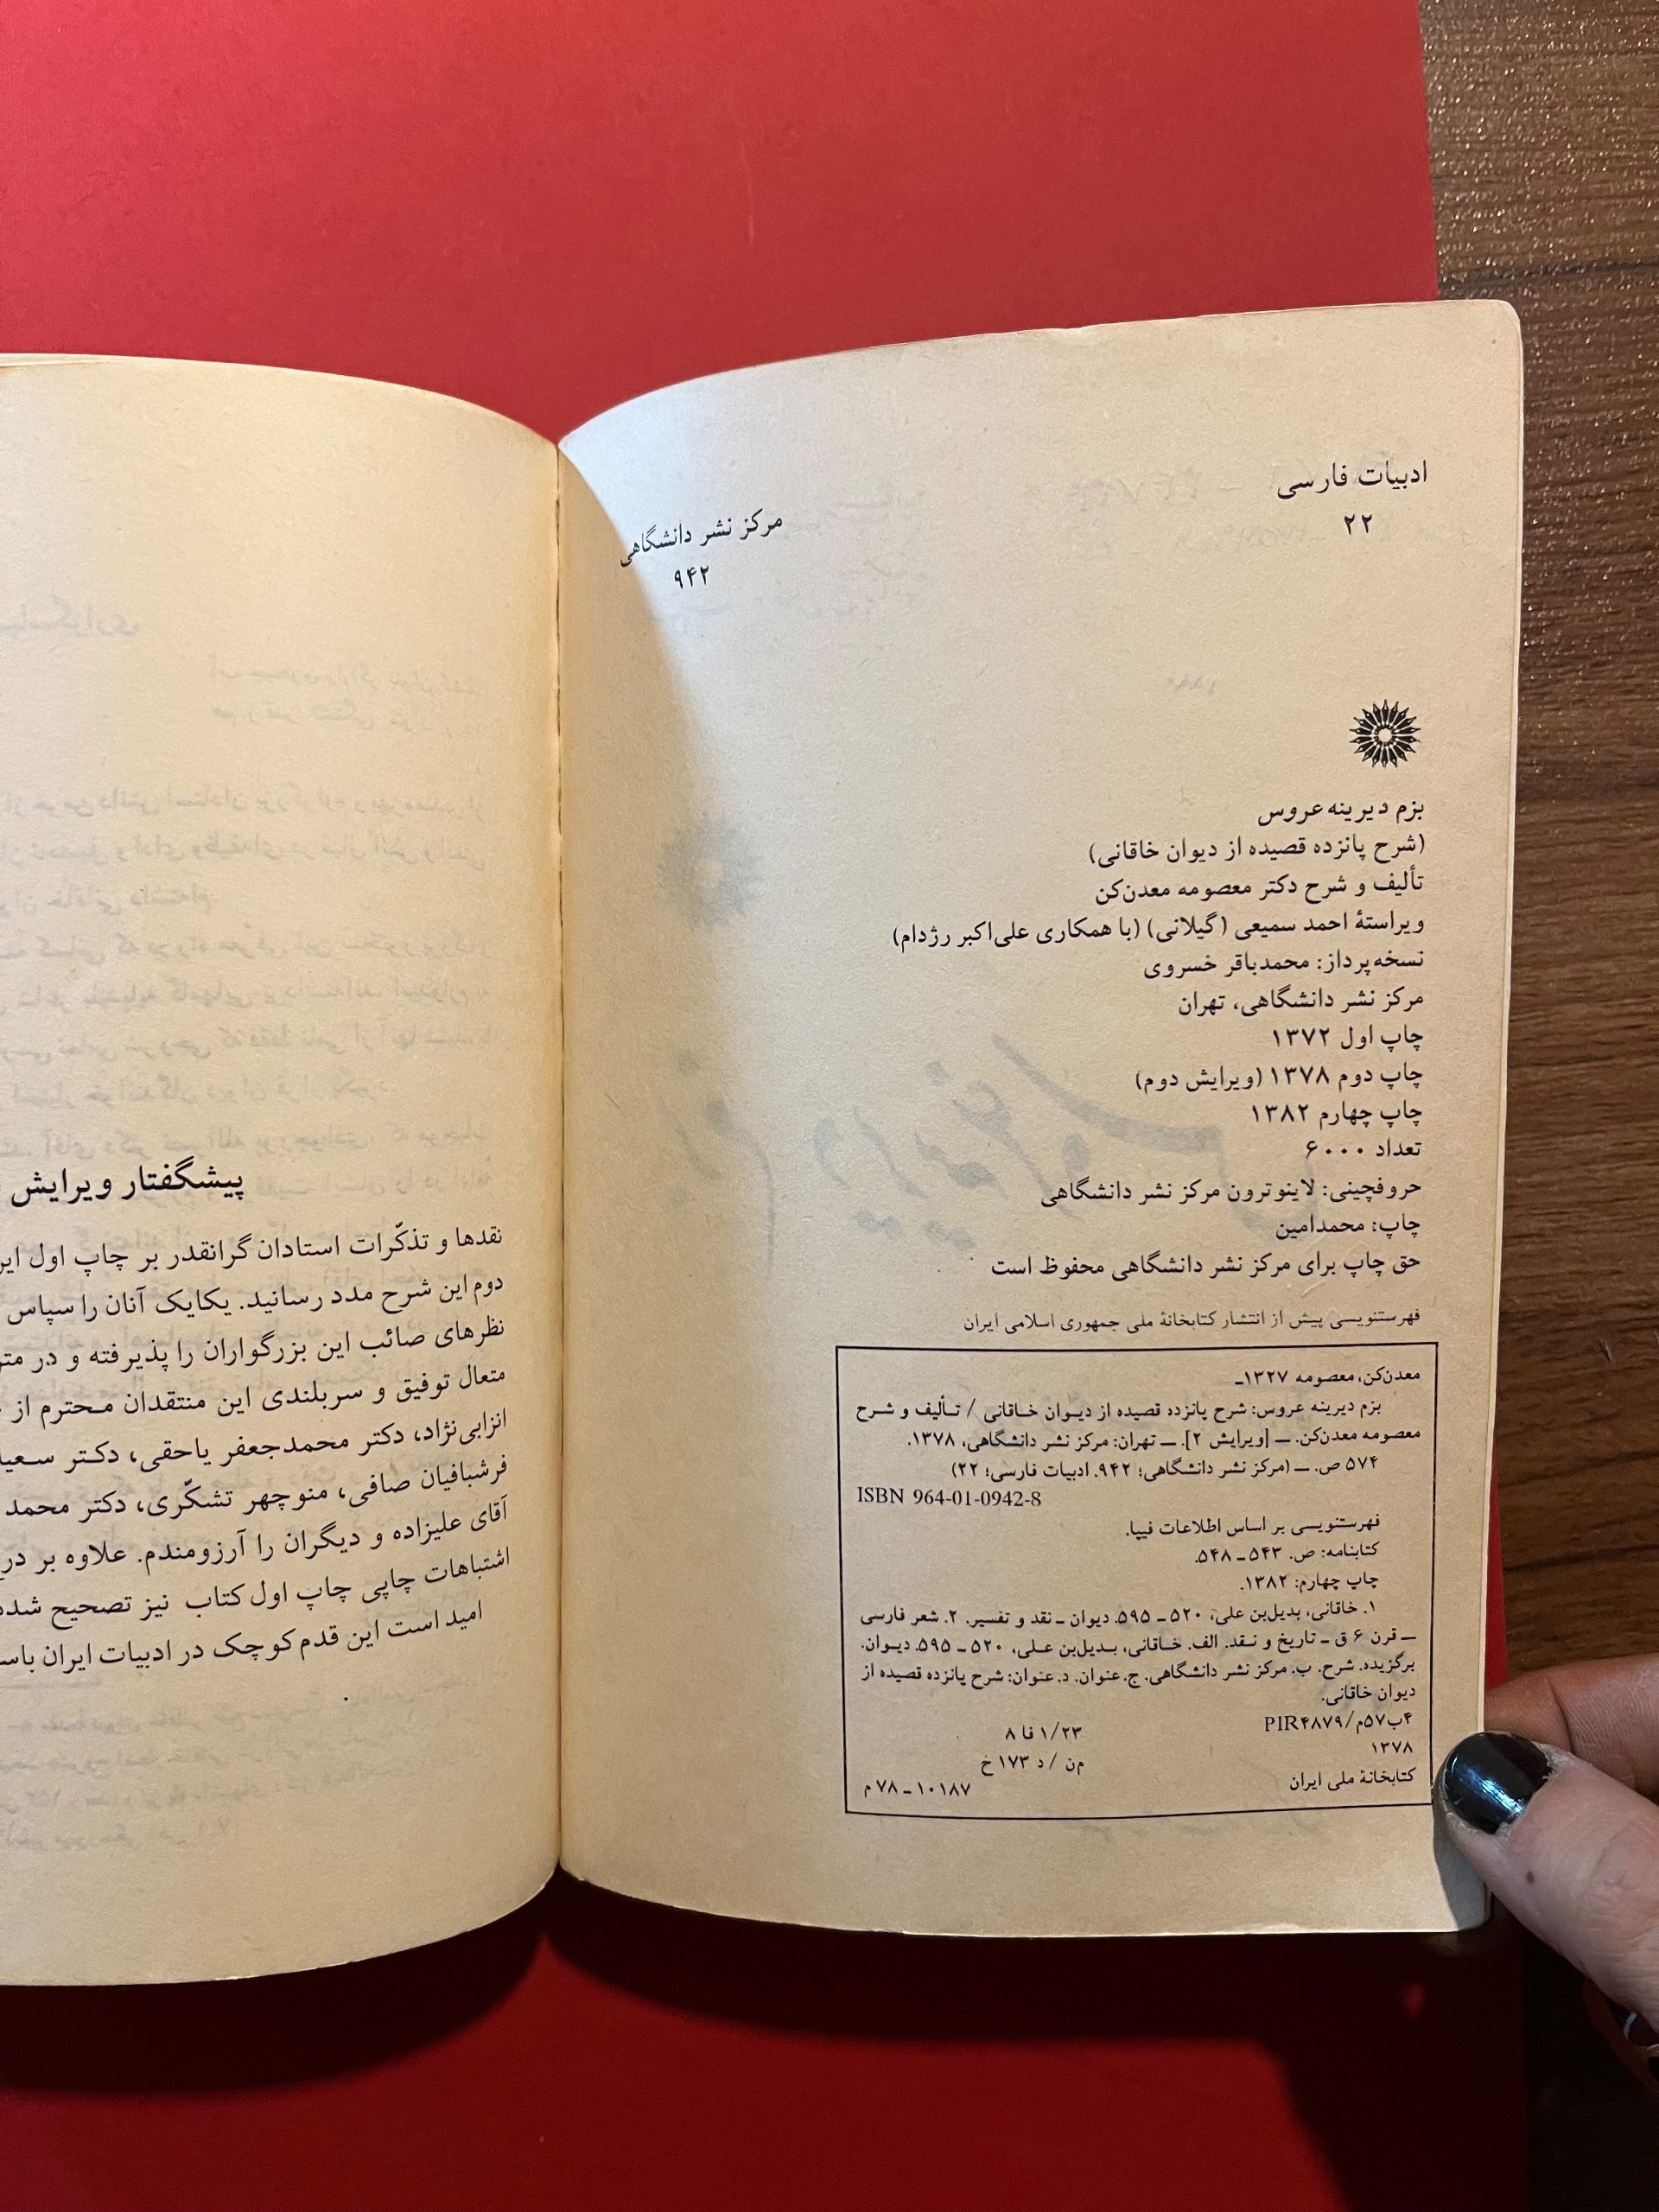 ادبیات فارسی
۲۲
مرکز نشر دانشگاهی
۹۴۲
بزم دیرینه عروس
(شرح پانزده قصیده از دیوان خاقانی)
تألیف و شرح دکتر معصومه معدن‌کن
ویراستهٔ احمد سمیعی (گیلانی) (با همکاری علی‌اکبر رژدام)
نسخه‌پرداز: محمدباقر خسروی
مرکز نشر دانشگاهی، تهران
چاپ اول ۱۳۷۲
چاپ دوم ۱۳۷۸ (ویرایش دوم)
چاپ چهارم ۱۳۸۲
تعداد ۶۰۰۰
حروفچینی: لاینوترون مرکز نشر دانشگاهی
چاپ: محمدامین
حق چاپ برای مرکز نشر دانشگاهی محفوظ است
فهرستنویسی پیش از انتشار کتابخانهٔ ملی جمهوری اسلامی ایران
معدن‌کن، معصومه ۱۳۲۷ـ
بزم دیرینه عروس: شرح پانزده قصیده از دیوان خاقانی / تألیف و شرح
معصومه معدن‌کن. ـ [ویرایش ۲]. ـ تهران: مرکز نشر دانشگاهی، ۱۳۷۸.
۵۷۴ ص. ـ (مرکز نشر دانشگاهی؛ ۹۴۲. ادبیات فارسی؛ ۲۲)
ISBN 964-01-0942-8
فهرستنویسی بر اساس اطلاعات فیپا.
کتابنامه: ص. ۵۴۳ ـ ۵۴۸.
چاپ چهارم: ۱۳۸۲.
۱. خاقانی، بدیل‌بن علی، ۵۲۰ ـ ۵۹۵. دیوان ـ نقد و تفسیر. ۲. شعر فارسی
ـ قرن ۶ ق ـ تاریخ و نقد. الف. خاقانی، بدیل‌بن علی، ۵۲۰ ـ ۵۹۵. دیوان.
برگزیده. شرح. ب. مرکز نشر دانشگاهی. ج. عنوان. د. عنوان: شرح پانزده قصیده از
دیوان خاقانی.
۴ب۵۷م/PIR۴۸۷۹ ۱/۲۳ فا ۸
۱۳۷۸ م‌ن / د ۱۷۳ خ
کتابخانهٔ ملی ایران ۱۰۱۸۷ ـ ۷۸ م
پیشگفتار ویرایش
نقدها و تذکّرات استادان گرانقدر بر چاپ اول این
دوم این شرح مدد رسانید. یکایک آنان را سپاس
نظرهای صائب این بزرگواران را پذیرفته و در
متعال توفیق و سربلندی این منتقدان محترم از
انزابی‌نژاد، دکتر محمدجعفر یاحقی، دکتر
فرشبافیان صافی، منوچهر تشکّری، دکتر محمد
آقای علیزاده و دیگران را آرزومندم. علاوه بر
اشتباهات چاپی چاپ اول کتاب نیز تصحیح
امید است این قدم کوچک در ادبیات ایران